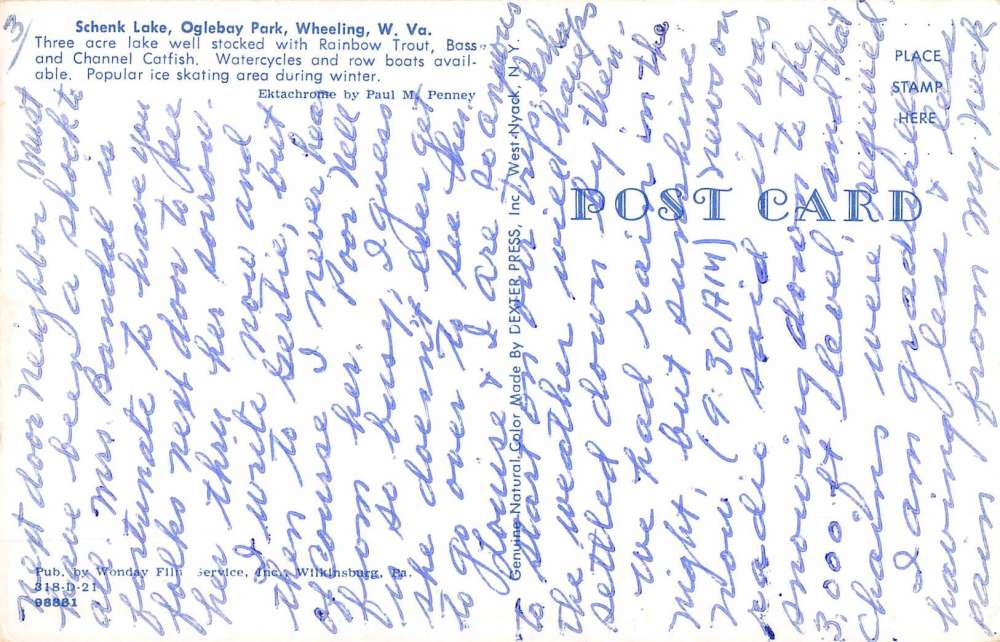 3
Schenk Lake, Oglebay Park, Wheeling, W. Va.
Three acre lake well stocked with Rainbow Trout, Bass
and Channel Catfish. Watercycles and row boats avail-
able. Popular ice skating area during winter.
Ektachrome by Paul M. Penney
PLACE
STAMP
HERE
POST CARD
Genuine Natural Color Made By DEXTER PRESS, Inc. West Nyack, N.Y.
Pub. by Wonday Film Service, Inc., Wilkinsburg, Pa.
318-D-21
98881
next door neighbor. Must
have been a shock to
all. Mrs Randal is
fortunate to have you
folks next door to see
her thru her sorrow.
I write now and
then to Gertie, but
of course I never hear
from her. Poor Nell
is so busy, I guess
she doesn't ever get
to go over to see them.
& I are so anxious
to start on our trip. Perhaps
the weather will have
settled down by then.
We had rain in the
night, but sunshine
now, (9:30 AM) News on
radio said it was
snowing down to the
3,000 ft level, and that
chains were required
I am gradually
having less & less
pain from my neck